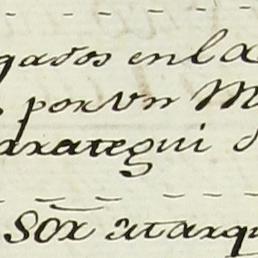 gados en la
por Vn M
arategui d
Sor Marq